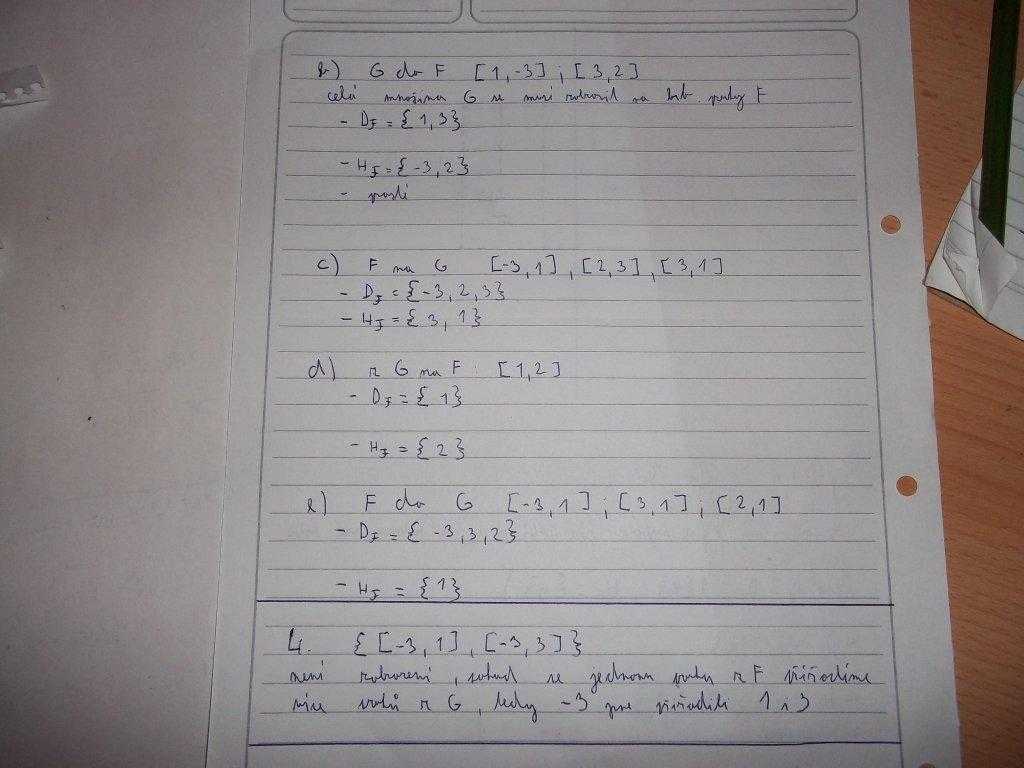 b) G do F [1,-3] ; [3,2]
celá množina G se musí zobrazit na prvky F
- Df = {1,3}
- Hf = {-3,2}
- prosté
c) F na G [-3,1] , [2,3] , [3,1]
- Df = {-3,2,3}
- Hf = {3,1}
d) z G na F [1,2]
- Df = {1}
- Hf = {2}
e) F do G [-3,1] ; [3,1] ; [2,1]
- Df = {-3,3,2}
- Hf = {1}
4. {[-3,1] , [-3,3]}
není zobrazení, pokud se jednomu prvku z F přiřadíme
více prvků z G, tedy -3 jsme přiřadili 1 i 3